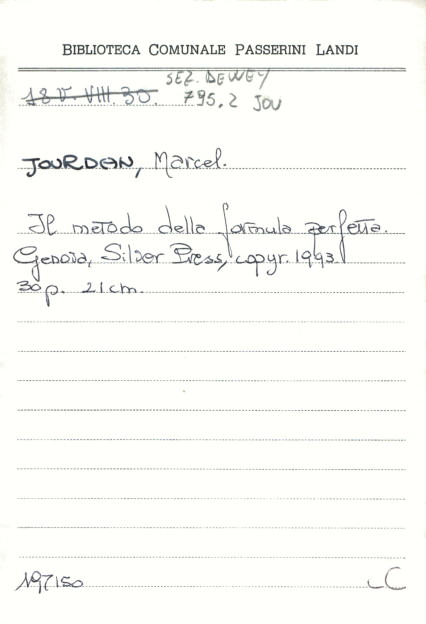 BIBLIOTECA COMUNALE PASSERINI LANDI
SEZ. DEWEY
18 V. VIII. 30. 795.2 JOU
JOURDAN, Marcel.
Il metodo della formula perfetta.
Genova, Silver Press, copyr. 1993.
30p. 21cm.
197150